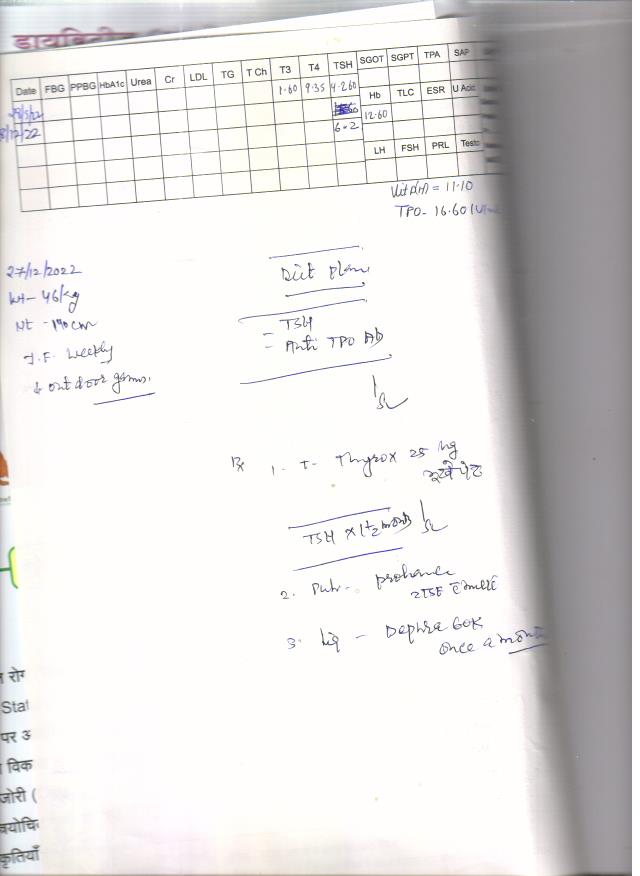 डायबिटीज
Date FBG PPBG HbA1c Urea Cr LDL TG T Ch T3 T4 TSH SGOT SGPT TPA SAP
1.60 9.35 4.260
Hb TLC ESR U Acid
12.60
8/12/22
6.2
LH FSH PRL Testo
Vit D(H) = 11.10
TPO- 16.60 IU/
27/12/2022
Wt- 46/kg
Ht - 140 cm
Diet Plan
J.F. weekly
↓ outdoor games.
= TSH
= Anti TPO Ab
Rx 1. T- Thyrox 25 mg
भूखे पेट
TSH x 1½ month
2. Pwdr-
2TSF c milk
3. Liq - Depura 60K
once a month
न रोग
Stat
पर अ
विक
जोरी (
कृतियाँ